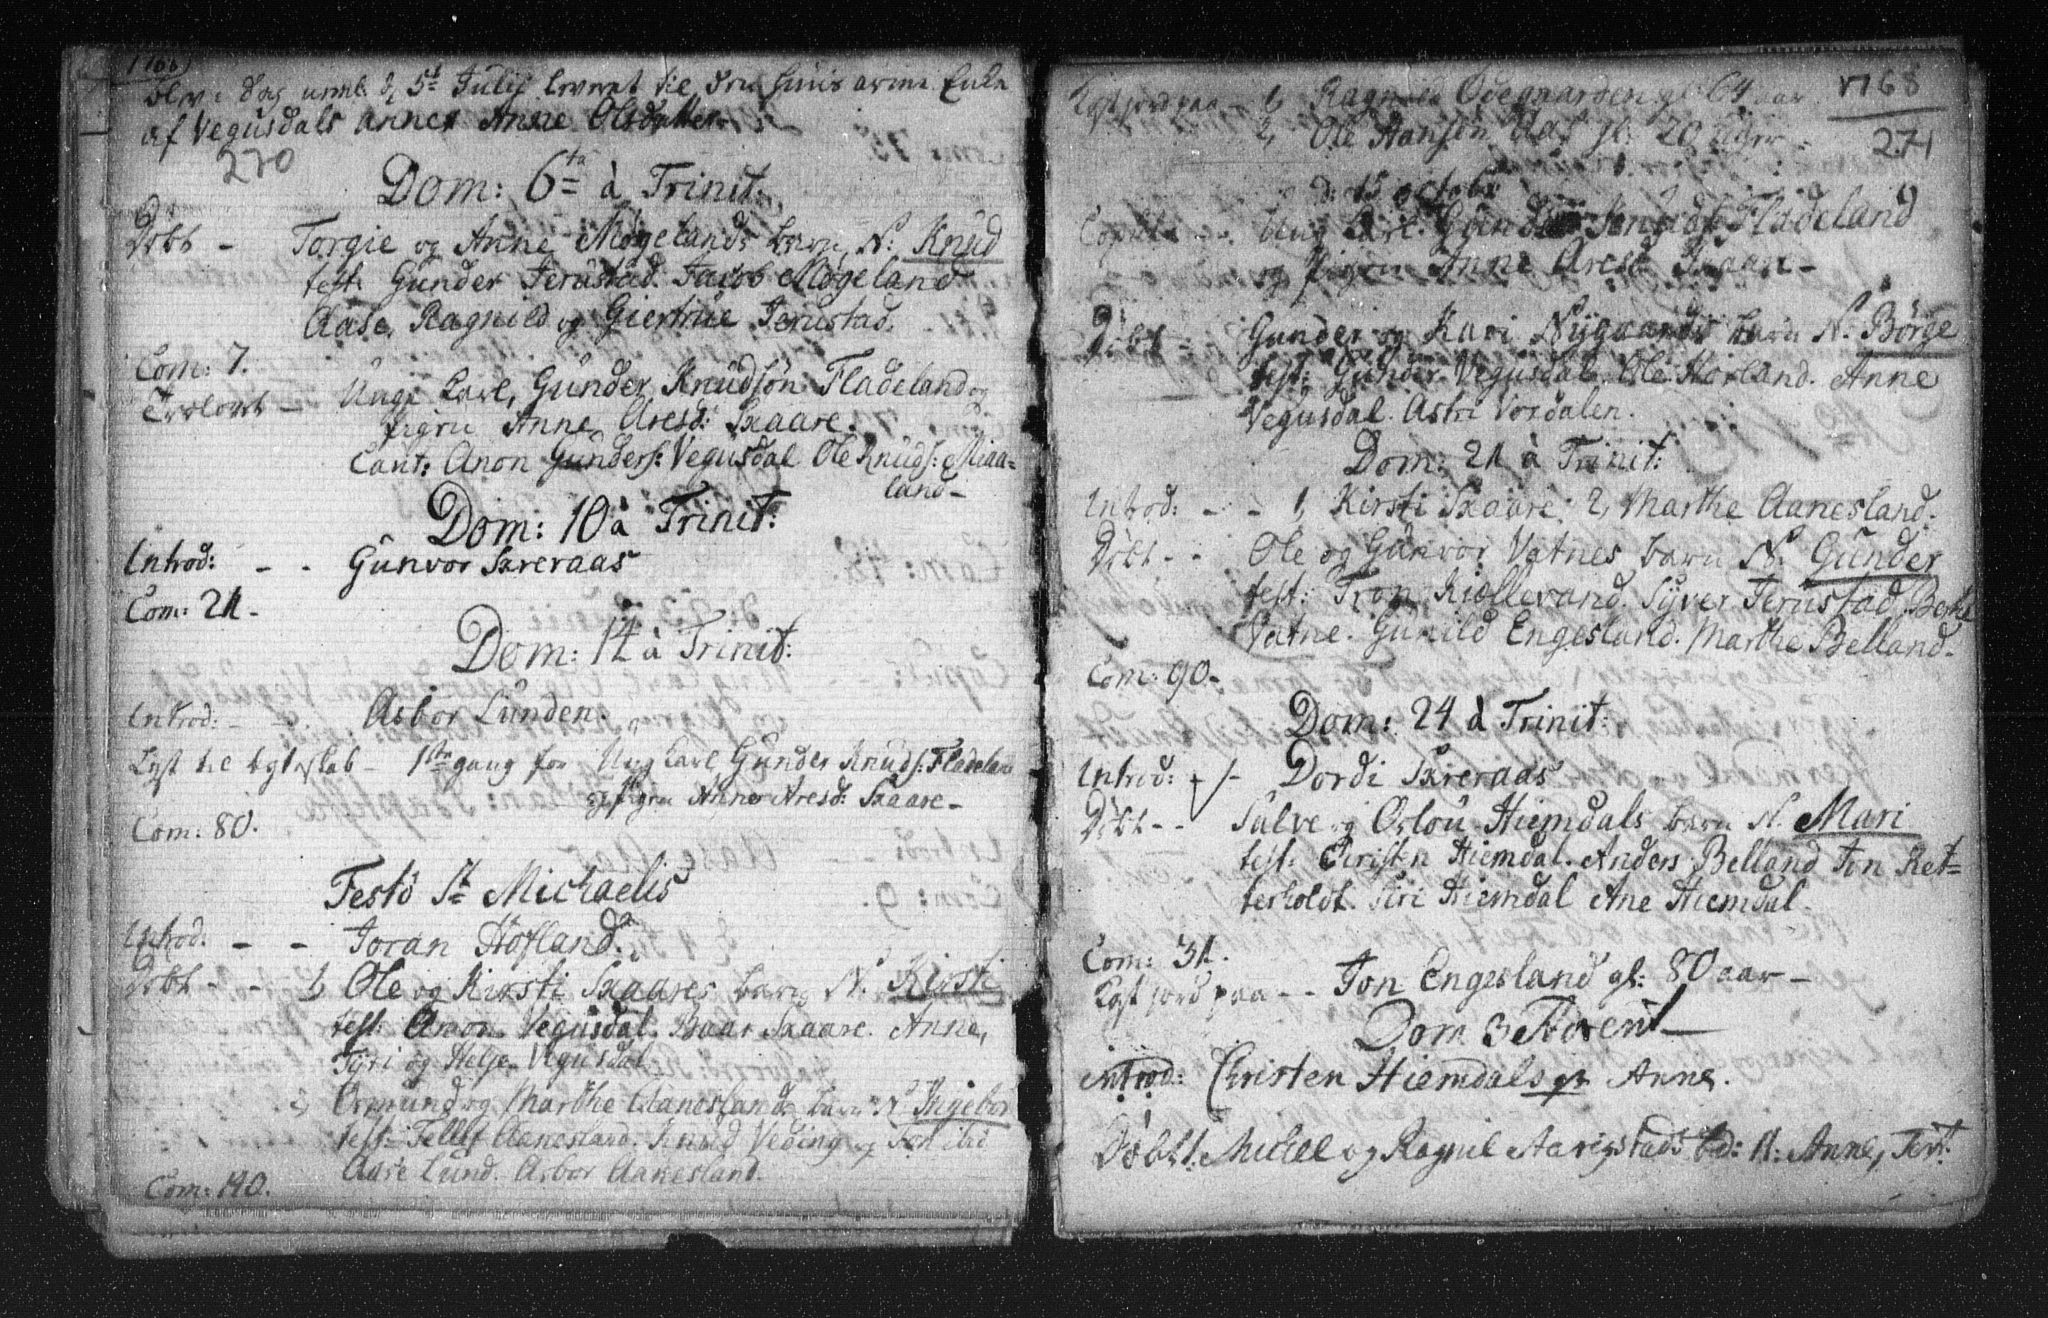 1768
blev i dag uml. d. 5t Julij leveret til den huus arme Enke
af Vegusdals annex Anne Olsdatter
270
Dom: 6ta à Trinit:
Döbt - Torgie og Anne Møgelands barn N: Knud
test: Gunder Ierustad. Jacob Møgeland
Aase, Ragnild og Giertrue Ierustad.
Com: 7.
Trolovt - Unge Karl, Gunder Knudsön Fladeland og
pigen Anne Aresd: Skaare.
Caut: Anon Gunders: Vegusdal Ole Knuds: Miaa-
land-
Dom: 10 à Trinit:
Introd: - - Gunvor Skreraas
Com: 21-
Dom: 14 à Trinit:
Introd: - - Asbor Lunden.
Lyst til Egteskab - 1ste gang for Ung Karl Gunder Knuds: Fladeland
og pigen Anne Aresd: Skaare-
Com: 80.
Festo St Michaelis
Introd: - - Joran Hofland.
Döbt - - 1, Ole og Kirsti Skaares barn N. Kirsti
test: Anon Vegusdal. Baar Skaare. Anne,
Tyri og Helje Vegusdal.
2, Ormund og Marthe Aanesland barn N Ingebor
test: Tellef Aanesland. Knud Veding og
Aase Lund. Asbor Aanesland.
Com: 140.
1768
271
Kast jord paa - 1, Ragnild Ødegaarden gl: 64 aar
2, Ole Hansen Aas gl: 20 uger
d: 15 octobr
Copul: - - Ung Karl Gunder Knuds: Fladeland
og pigen Anne Aresd Skaare-
Döbt - Gunder og Kari Nygaards barn N. Börge
test: Gunder Vegusdal. Ole Horland. Anne
Vegusdal. Astri Vordalen.
Dom: 21 à Trinit:
Introd: - - 1, Kirsti Skaare. 2, Marthe Aanesland.
Döbt - - Ole og Gunvor Vatnes barn N. Gunder
test: Tron Kiöllevand. Syver Ierustad. Berte
Vatne. Gunild Engesland. Marthe Belland.
Com: 90.-
Dom: 24 à Trinit:
Introd: - Dordi Skreraas
Döbt - - Salve og Oslou Hiemdals barn N. Mari
test: Christen Hiemdal. Anders Belland Jon Ret-
terholdt. Siri Hiemdal Ane Hiemdal.
Com: 31.
Kast jord paa - - Jon Engesland gl: 80 aar -
Dom 3 Advent
introd: Christen Hiemdals qv Anne.
Döbt: Mickel og Ragnil Aarigstads bd: N: Anne, Test: